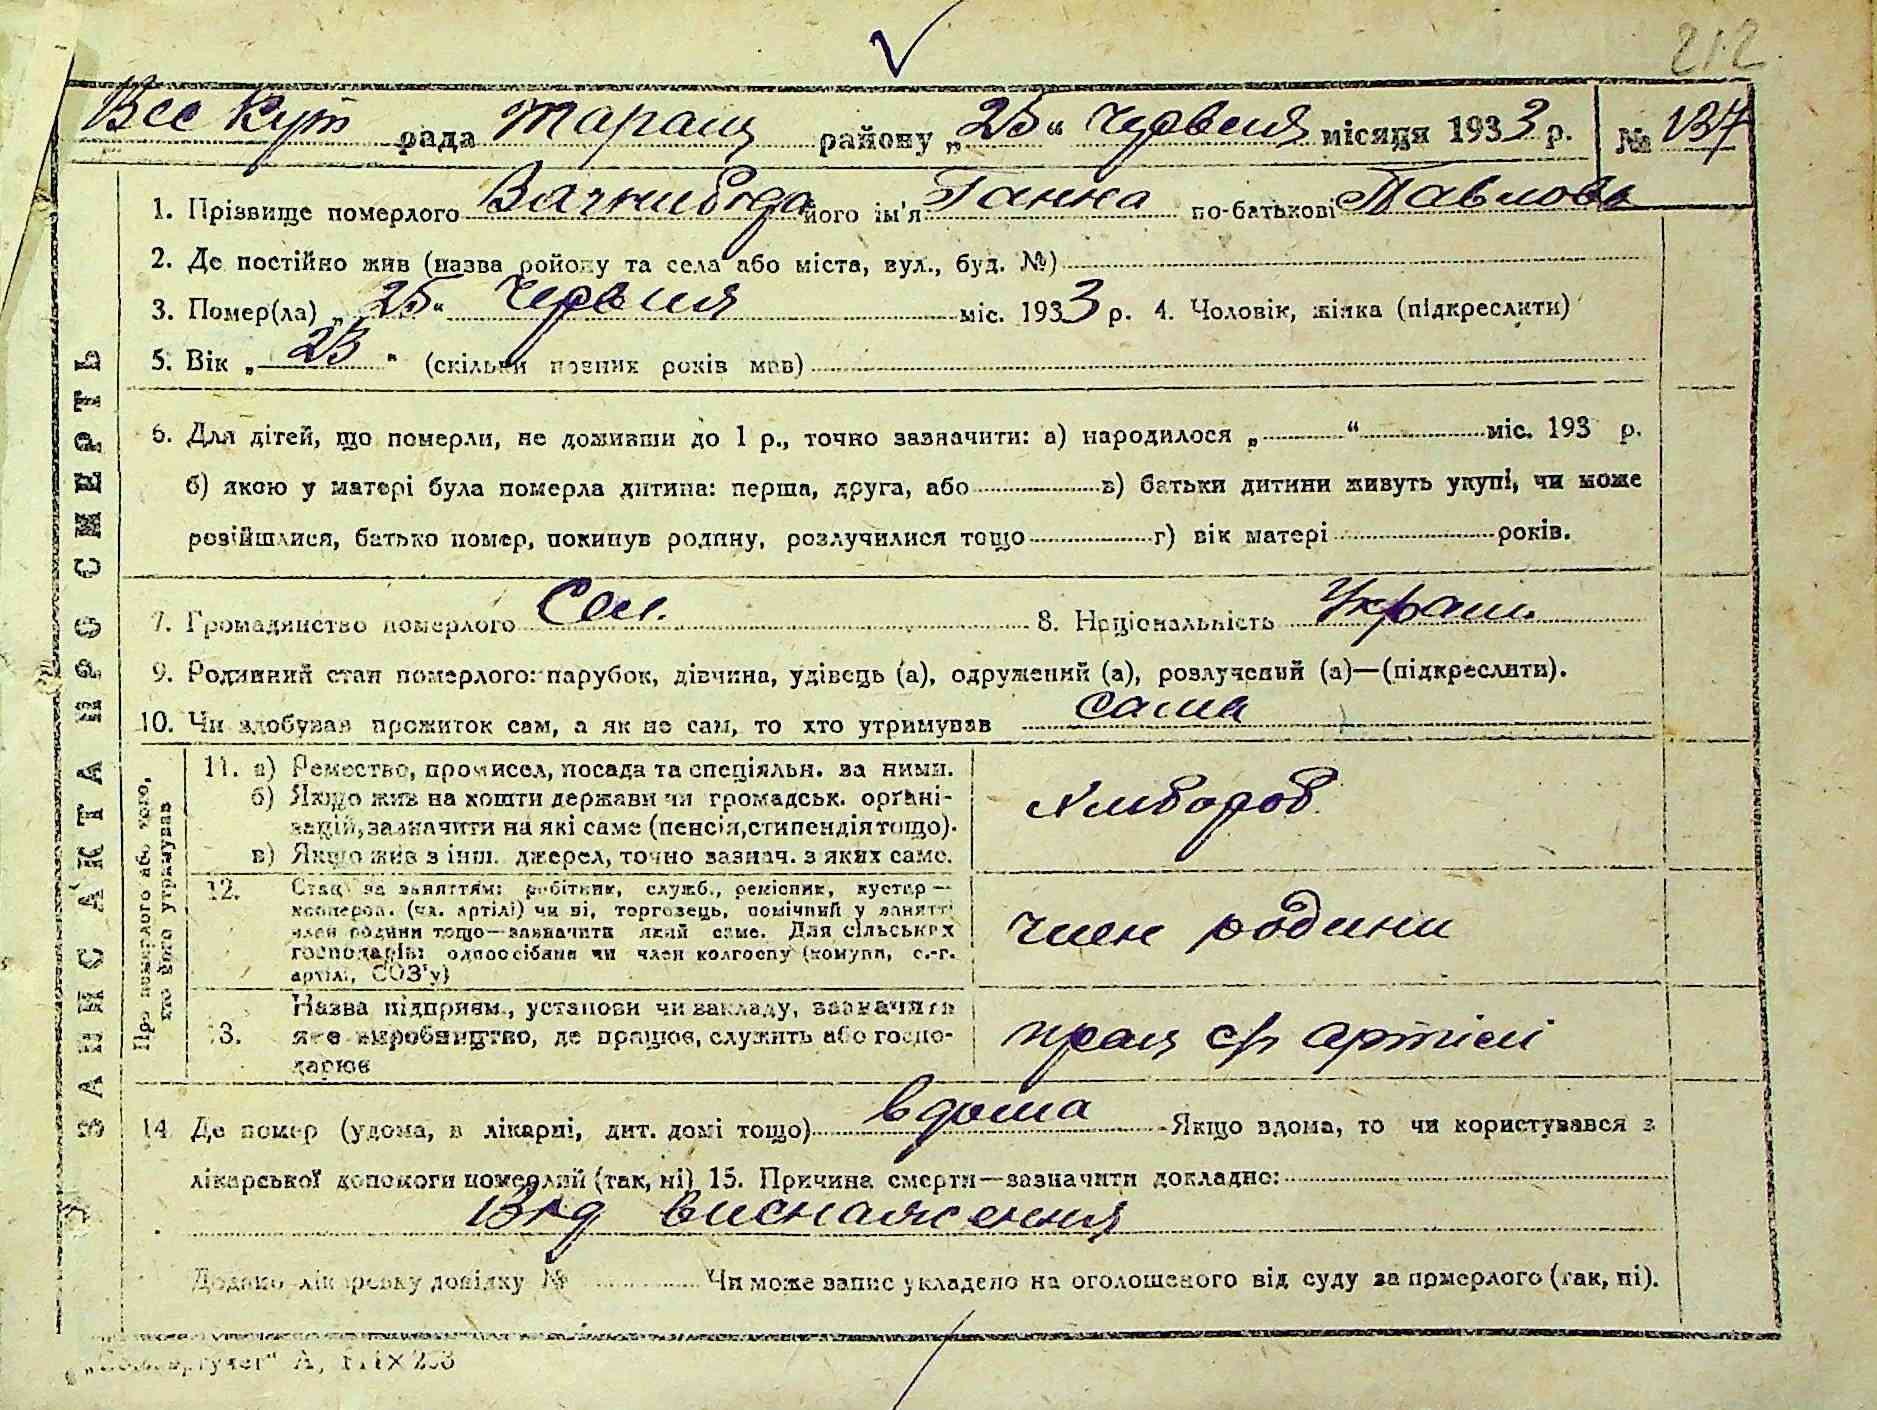 212
Все Кут рада Таращ району „25“ Червня місяця 1933 р. № 137
1. Прізвище померлого його ім'я Ганна по-батькові Павлова
2. Де постійно жив (назва району та села або міста, вул., буд. №)
3. Помер(ла) „25“ Червня міс. 1933 р. 4. Чоловік, жінка (підкреслити)
5. Вік „23“ (скільки повних років мав)
6. Для дітей, що померли, не доживши до 1 р., точно зазначити: а) народилося „ “ міс. 193 р.
б) якою у матері була померла дитина: перша, друга, або в) батьки дитини живуть укупі, чи може
розійшлися, батько помер, покинув родину, розлучилися тощо г) вік матері років.
7. Громадянство померлого 8. Національність Україн.
9. Родинний стан померлого: парубок, дівчина, удівець (а), одружений (а), розлучений (а)—(підкреслити).
10. Чи здобував прожиток сам, а як не сам, то хто утримував сама
ЗАПИС АКТА ПРО СМЕРТЬ
Про померлого або того,
хто його утримував
11. а) Ремество, промисел, посада та спеціяльн. за ними.
б) Якщо жив на кошти держави чи громадськ. органі-
зацій, зазначити на які саме (пенсія, стипендія тощо).
в) Якщо жив з інш. джерел, точно зазнач. з яких саме.
Хлібороб
12. Стан за заняттям: робітник, служб., ремісник, кустар —
коопероа. (чл. артілі) чи ні, торговець, помічний у занятті
член родини тощо—зазначити який саме. Для сільських
господарів: одноосібник чи член колгоспу (комуни, с.-г.
артілі, СОЗ'у)
член родини
13. Назва підприєм., установи чи закладу, зазначити
яке виробництво, де працює, служить або госпо-
дарює
прац с/г артілі
14 Де помер (удома, в лікарні, дит. домі тощо) вдома Якщо вдома, то чи користувався з
лікарської допомоги померлий (так, ні) 15. Причина смерти—зазначити докладно:
Від виснаження
Додано лікарську довідку № Чи може запис укладено на оголошеного від суду за померлого (так, ні).